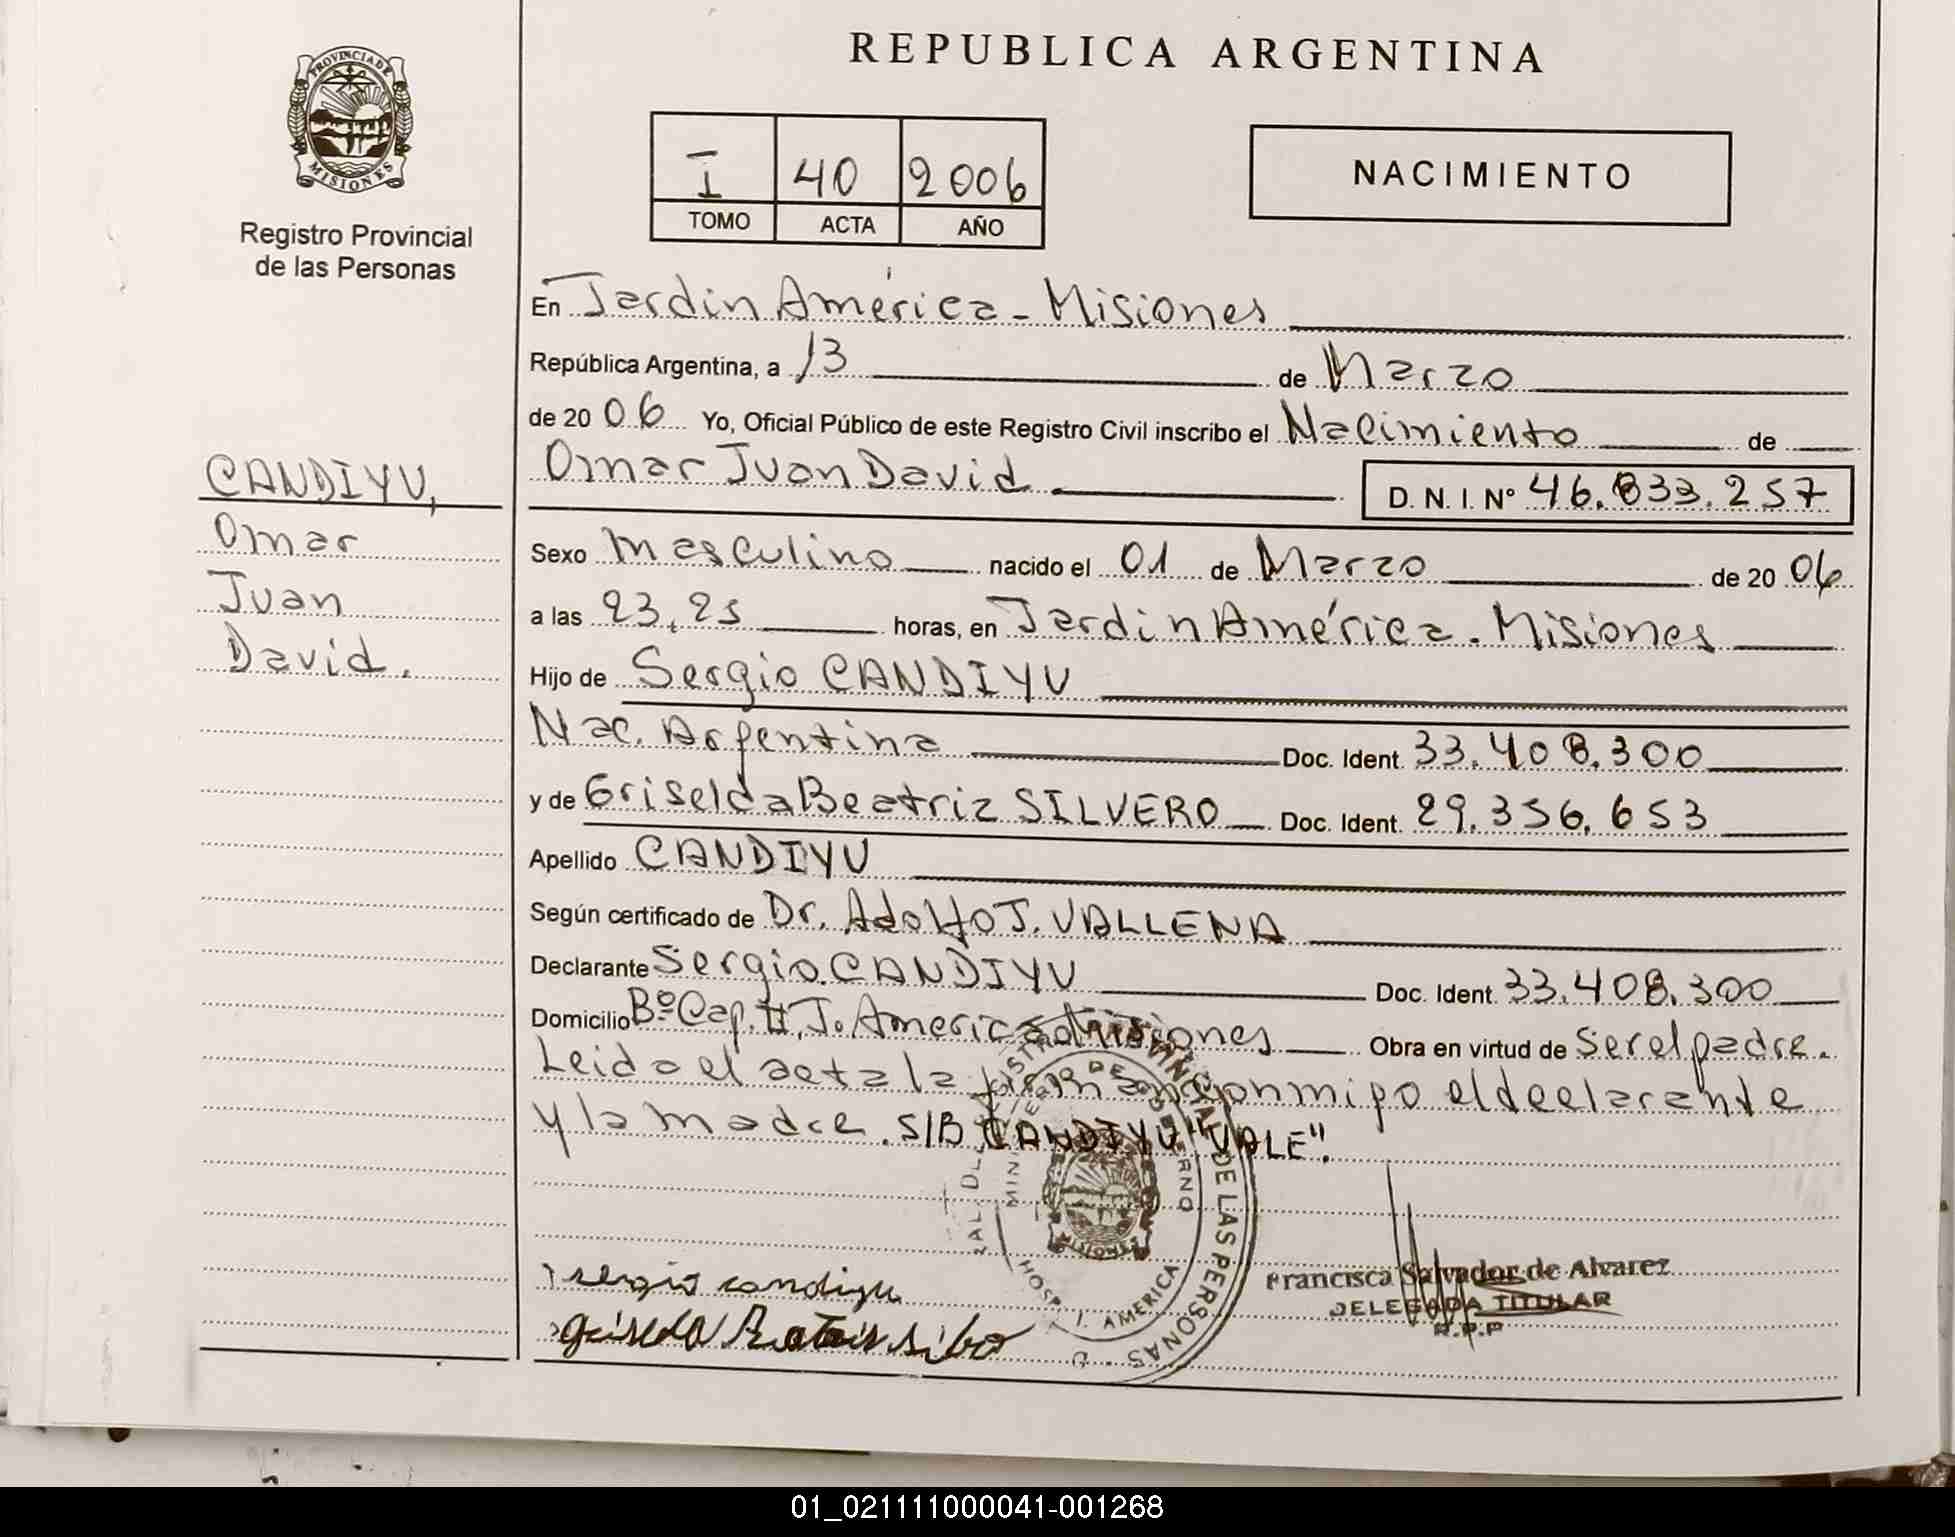 REPUBLICA ARGENTINA
PROVINCIA DE MISIONES
Registro Provincial
de las Personas
I 40 2006
TOMO ACTA AÑO
NACIMIENTO
En Jardin América - Misiones
República Argentina, a 13 de Marzo
de 20 06 Yo, Oficial Público de este Registro Civil inscribo el Nacimiento de
Omar Juan David D. N. I. Nº 46.833.257
CANDIYU,
Omar
Juan
David.
Sexo masculino nacido el 01 de Marzo de 20 06
a las 23,25 horas, en Jardin América. Misiones
Hijo de Sergio CANDIYU
Nac. Argentina Doc. Ident. 33.408.300
y de Griselda Beatriz SILVERO Doc. Ident. 29.356.653
Apellido CANDIYU
Según certificado de Dr. Adolfo J. VALLENA
Declarante Sergio CANDIYU Doc. Ident. 33.408.300
Domicilio Bº Cap. II, J. America Misiones Obra en virtud de Ser el padre.
Leida el acta la firman conmigo el declarante
y la madre. S/B CANDIYU "VALE".
sergio candiyu
Francisca Salvador de Alvarez
DELEGADA TITULAR
R.P.P
MINISTERIO DE GOBIERNO
DE LAS PERSONAS
HOSP. J. AMERICA
MISIONES
01_021111000041-001268